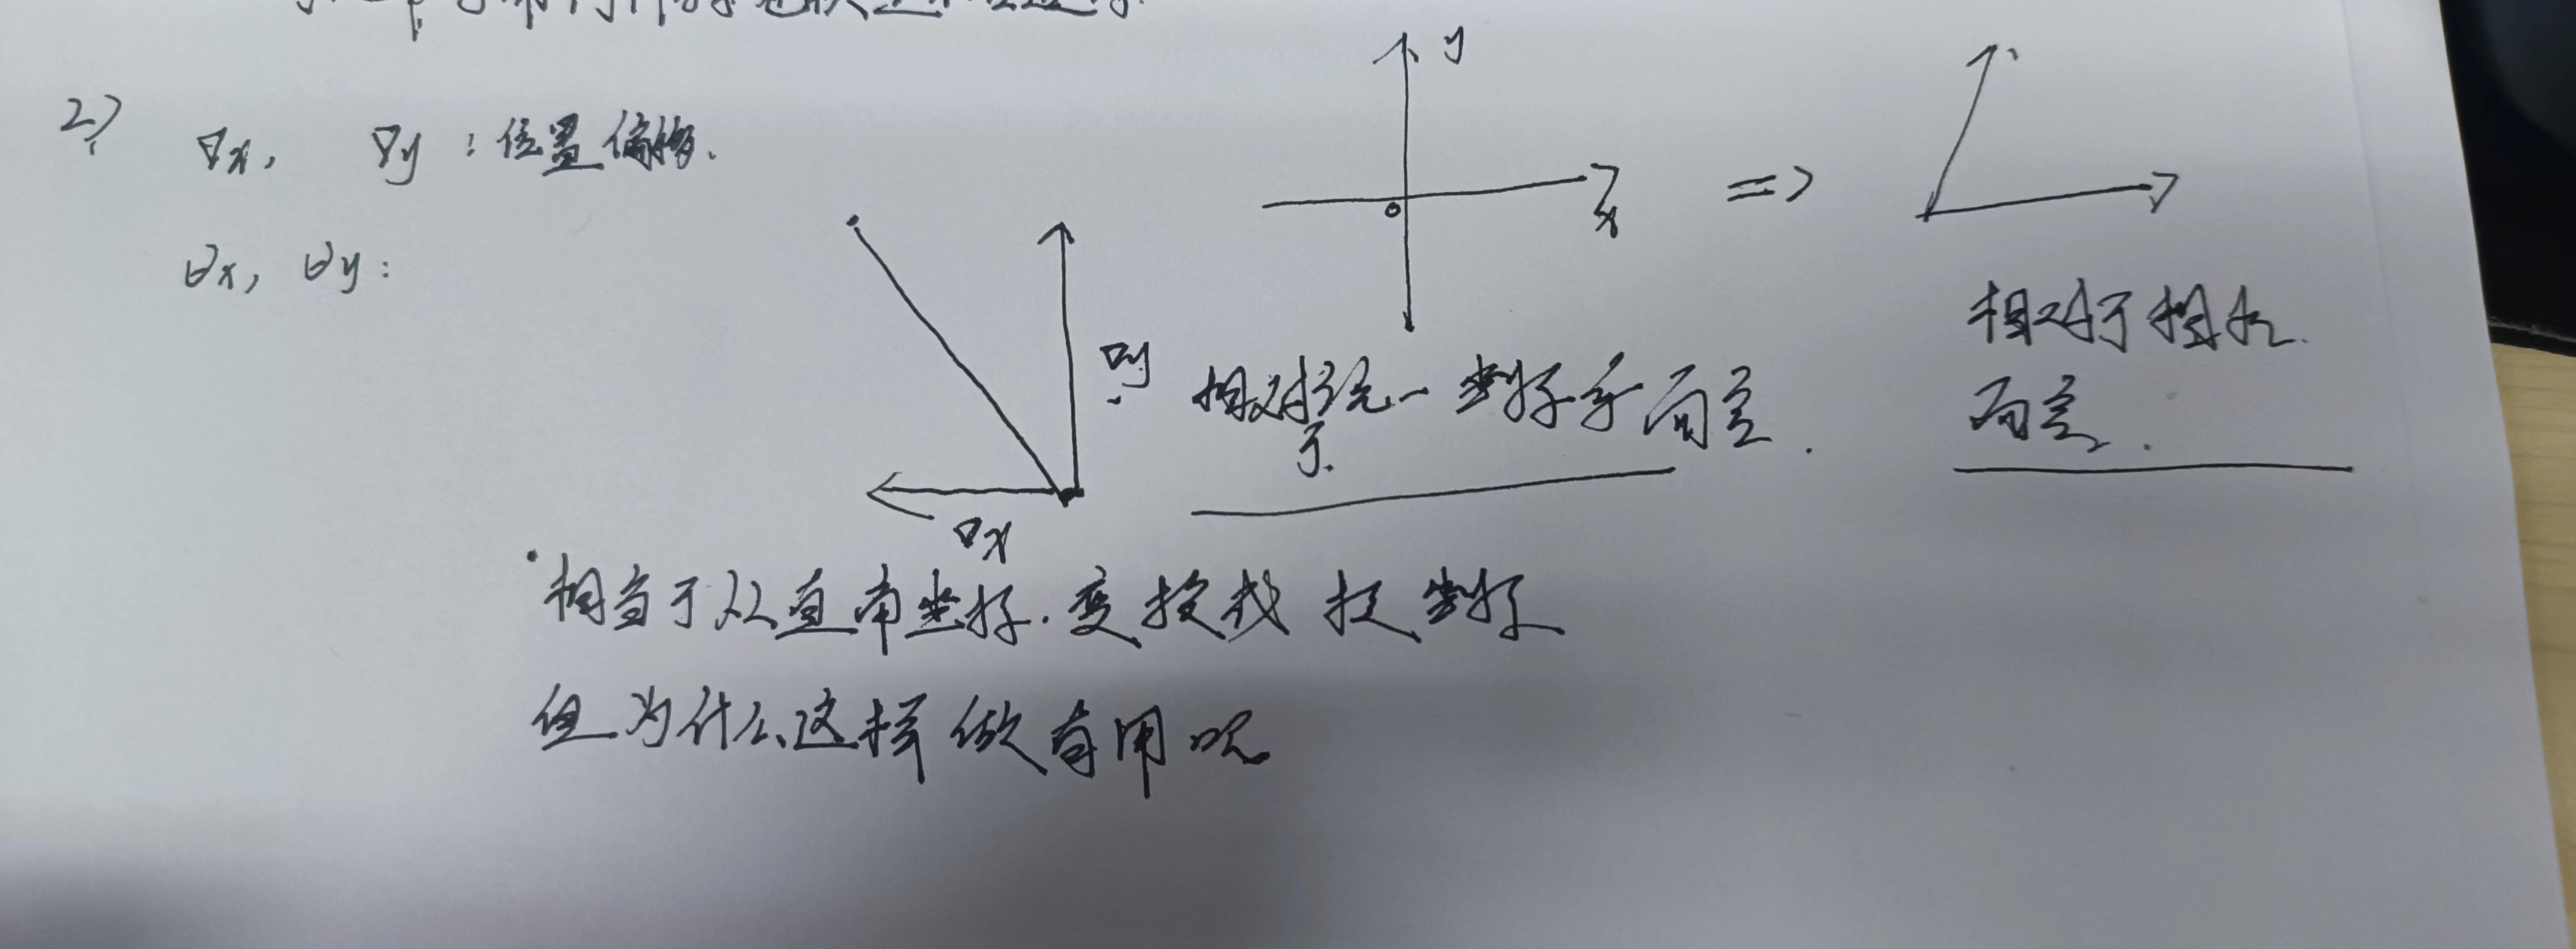 2)
∇x, ∇y : 位置偏移.
θx, θy :
y
x
o
⇒
∇y
∇x
相对于统一坐标系而言.
相对于相机
而言.
·相当于从直角坐标.变换成极坐标
但为什么这样做有用呢